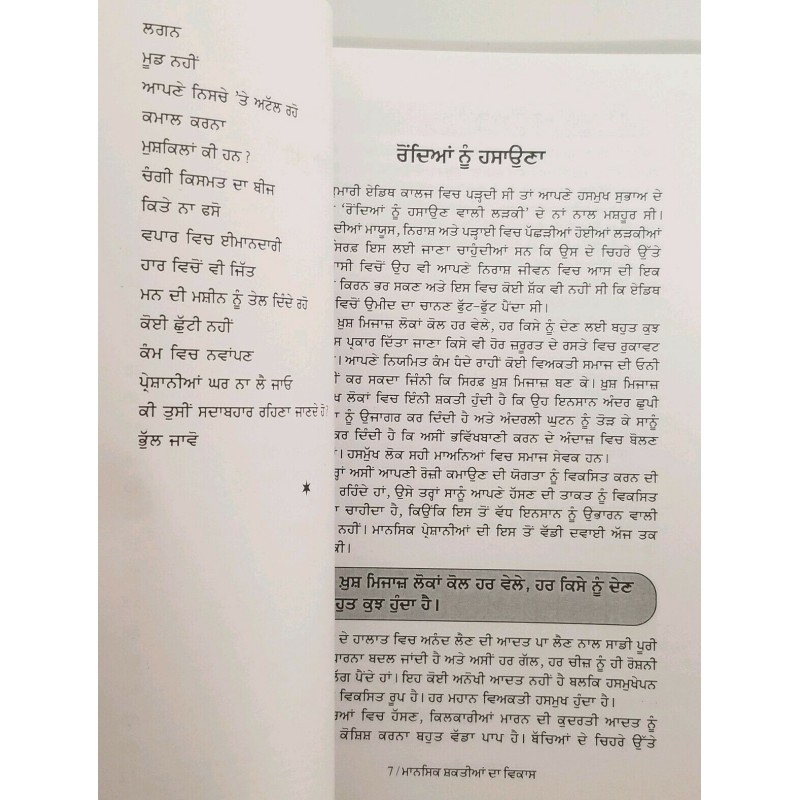 ਲਗਨ
ਮੂਡ ਨਹੀਂ
ਆਪਣੇ ਨਿਸਚੇ 'ਤੇ ਅਟੱਲ ਰਹੋ
ਕਮਾਲ ਕਰਨਾ
ਮੁਸ਼ਕਿਲਾਂ ਕੀ ਹਨ?
ਚੰਗੀ ਕਿਸਮਤ ਦਾ ਬੀਜ
ਕਿਤੇ ਨਾ ਫਸੋ
ਵਪਾਰ ਵਿਚ ਈਮਾਨਦਾਰੀ
ਹਾਰ ਵਿਚੋਂ ਵੀ ਜਿੱਤ
ਮਨ ਦੀ ਮਸ਼ੀਨ ਨੂੰ ਤੇਲ ਦਿੰਦੇ ਰਹੋ
ਕੋਈ ਛੁੱਟੀ ਨਹੀਂ
ਕੰਮ ਵਿਚ ਨਵਾਂਪਣ
ਪ੍ਰੇਸ਼ਾਨੀਆਂ ਘਰ ਨਾ ਲੈ ਜਾਓ
ਕੀ ਤੁਸੀਂ ਸਦਾਬਹਾਰ ਰਹਿਣਾ ਜਾਣਦੇ ਹੋ?
ਭੁੱਲ ਜਾਵੋ
ਰੋਂਦਿਆਂ ਨੂੰ ਹਸਾਉਣਾ
ਏਡਿਥ ਕਾਲਜ ਵਿਚ ਪੜ੍ਹਦੀ ਸੀ ਤਾਂ ਆਪਣੇ ਹਸਮੁਖ ਸੁਭਾਅ ਦੇ
'ਰੋਂਦਿਆਂ ਨੂੰ ਹਸਾਉਣ ਵਾਲੀ ਲੜਕੀ' ਦੇ ਨਾਂ ਨਾਲ ਮਸ਼ਹੂਰ ਸੀ।
ਮਾਯੂਸ, ਨਿਰਾਸ਼ ਅਤੇ ਪੜ੍ਹਾਈ ਵਿਚ ਪੱਛੜੀਆਂ ਹੋਈਆਂ ਲੜਕੀਆਂ
ਸਿਰਫ਼ ਇਸ ਲਈ ਜਾਣਾ ਚਾਹੁੰਦੀਆਂ ਸਨ ਕਿ ਉਸ ਦੇ ਚਿਹਰੇ ਉੱਤੇ
ਵਿਚੋਂ ਉਹ ਵੀ ਆਪਣੇ ਨਿਰਾਸ਼ ਜੀਵਨ ਵਿਚ ਆਸ ਦੀ ਇਕ
ਕਿਰਨ ਭਰ ਸਕਣ ਅਤੇ ਇਸ ਵਿਚ ਕੋਈ ਸ਼ੱਕ ਵੀ ਨਹੀਂ ਸੀ ਕਿ ਏਡਿਥ
ਵਿਚੋਂ ਉਮੀਦ ਦਾ ਚਾਨਣ ਫੁੱਟ-ਫੁੱਟ ਪੈਂਦਾ ਸੀ।
ਖ਼ੁਸ਼ ਮਿਜਾਜ਼ ਲੋਕਾਂ ਕੋਲ ਹਰ ਵੇਲੇ, ਹਰ ਕਿਸੇ ਨੂੰ ਦੇਣ ਲਈ ਬਹੁਤ ਕੁਝ
ਪ੍ਰਕਾਰ ਦਿੱਤਾ ਜਾਣਾ ਕਿਸੇ ਵੀ ਹੋਰ ਜ਼ਰੂਰਤ ਦੇ ਰਸਤੇ ਵਿਚ ਰੁਕਾਵਟ
। ਆਪਣੇ ਨਿਯਮਿਤ ਕੰਮ ਧੰਦੇ ਰਾਹੀਂ ਕੋਈ ਵਿਅਕਤੀ ਸਮਾਜ ਦੀ ਓਨੀ
ਕਰ ਸਕਦਾ ਜਿੰਨੀ ਕਿ ਸਿਰਫ਼ ਖ਼ੁਸ਼ ਮਿਜਾਜ਼ ਬਣ ਕੇ। ਖ਼ੁਸ਼ ਮਿਜਾਜ਼
ਲੋਕਾਂ ਵਿਚ ਇੰਨੀ ਸ਼ਕਤੀ ਹੁੰਦੀ ਹੈ ਕਿ ਉਹ ਇਨਸਾਨ ਅੰਦਰ ਛੁਪੀ
ਨੂੰ ਉਜਾਗਰ ਕਰ ਦਿੰਦੀ ਹੈ ਅਤੇ ਅੰਦਰਲੀ ਘੁਟਨ ਨੂੰ ਤੋੜ ਕੇ ਸਾਨੂੰ
ਕਰ ਦਿੰਦੀ ਹੈ ਕਿ ਅਸੀਂ ਭਵਿੱਖਬਾਣੀ ਕਰਨ ਦੇ ਅੰਦਾਜ਼ ਵਿਚ ਬੋਲਣ
। ਹਸਮੁੱਖ ਲੋਕ ਸਹੀ ਮਾਅਨਿਆਂ ਵਿਚ ਸਮਾਜ ਸੇਵਕ ਹਨ।
ਅਸੀਂ ਆਪਣੀ ਰੋਜ਼ੀ ਕਮਾਉਣ ਦੀ ਯੋਗਤਾ ਨੂੰ ਵਿਕਸਿਤ ਕਰਨ ਦੀ
ਰਹਿੰਦੇ ਹਾਂ, ਉਸੇ ਤਰ੍ਹਾਂ ਸਾਨੂੰ ਆਪਣੇ ਹੱਸਣ ਦੀ ਤਾਕਤ ਨੂੰ ਵਿਕਸਿਤ
ਚਾਹੀਦਾ ਹੈ, ਕਿਉਂਕਿ ਇਸ ਤੋਂ ਵੱਧ ਇਨਸਾਨ ਨੂੰ ਉਭਾਰਨ ਵਾਲੀ
ਨਹੀਂ। ਮਾਨਸਿਕ ਪ੍ਰੇਸ਼ਾਨੀਆਂ ਦੀ ਇਸ ਤੋਂ ਵੱਡੀ ਦਵਾਈ ਅੱਜ ਤਕ
ਕੀ।
ਖ਼ੁਸ਼ ਮਿਜਾਜ਼ ਲੋਕਾਂ ਕੋਲ ਹਰ ਵੇਲੇ, ਹਰ ਕਿਸੇ ਨੂੰ ਦੇਣ
ਹੁਤ ਕੁਝ ਹੁੰਦਾ ਹੈ।
ਦੇ ਹਾਲਾਤ ਵਿਚ ਅਨੰਦ ਲੈਣ ਦੀ ਆਦਤ ਪਾ ਲੈਣ ਨਾਲ ਸਾਡੀ ਪੂਰੀ
ਬਦਲ ਜਾਂਦੀ ਹੈ ਅਤੇ ਅਸੀਂ ਹਰ ਗੱਲ, ਹਰ ਚੀਜ਼ ਨੂੰ ਹੀ ਰੋਸ਼ਨੀ
ਪੈਂਦੇ ਹਾਂ। ਇਹ ਕੋਈ ਅਨੋਖੀ ਆਦਤ ਨਹੀਂ ਹੈ ਬਲਕਿ ਹਸਮੁਖੇਪਨ
ਵਿਕਸਿਤ ਰੂਪ ਹੈ। ਹਰ ਮਹਾਨ ਵਿਅਕਤੀ ਹਸਮੁਖ ਹੁੰਦਾ ਹੈ।
ਵਿਚ ਹੱਸਣ, ਕਿਲਕਾਰੀਆਂ ਮਾਰਨ ਦੀ ਕੁਦਰਤੀ ਆਦਤ ਨੂੰ
ਕੋਸ਼ਿਸ਼ ਕਰਨਾ ਬਹੁਤ ਵੱਡਾ ਪਾਪ ਹੈ। ਬੱਚਿਆਂ ਦੇ ਚਿਹਰੇ ਉੱਤੇ
7/ਮਾਨਸਿਕ ਸ਼ਕਤੀਆਂ ਦਾ ਵਿਕਾਸ